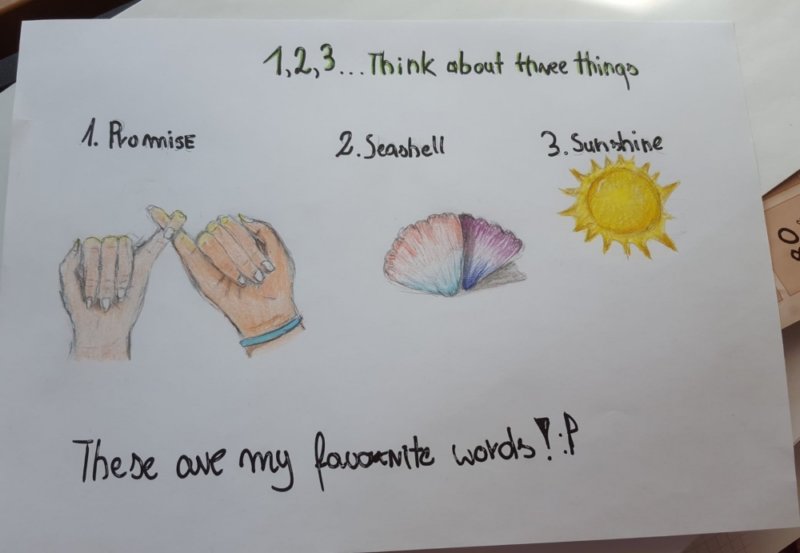 1,2,3...Think about three things
1. Promise
2. Seashell
3. Sunshine
These are my favourite words! :P